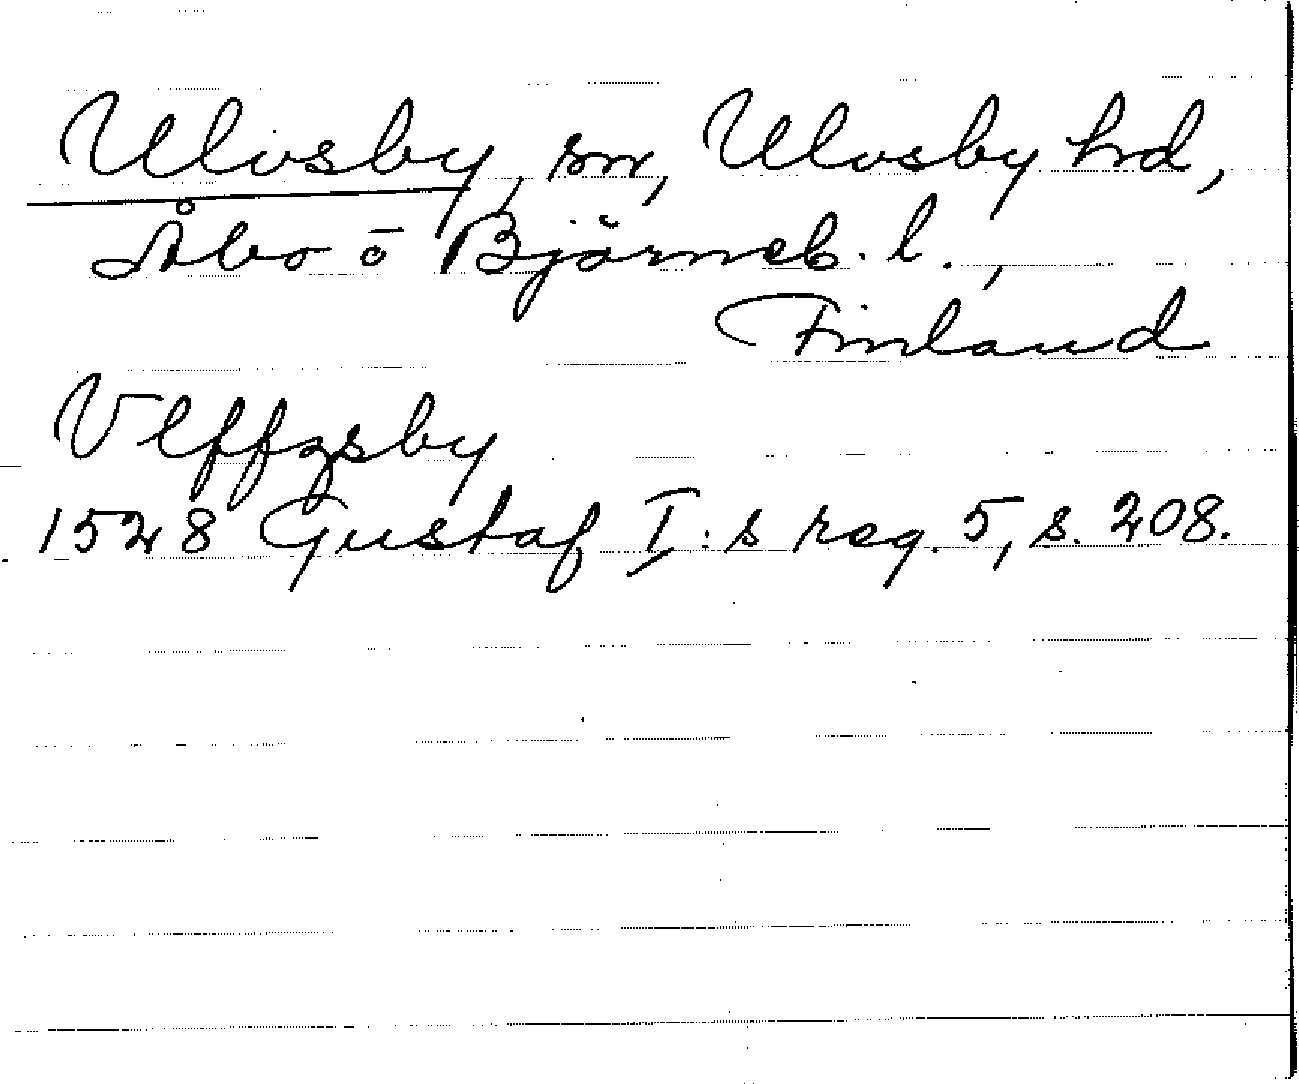 Ulvsby, sn, Ulvsby hd,
Åbo o Björneb. l.,
Finland
Vlffzsby
1528 Gustaf I:s reg. 5, s. 208.